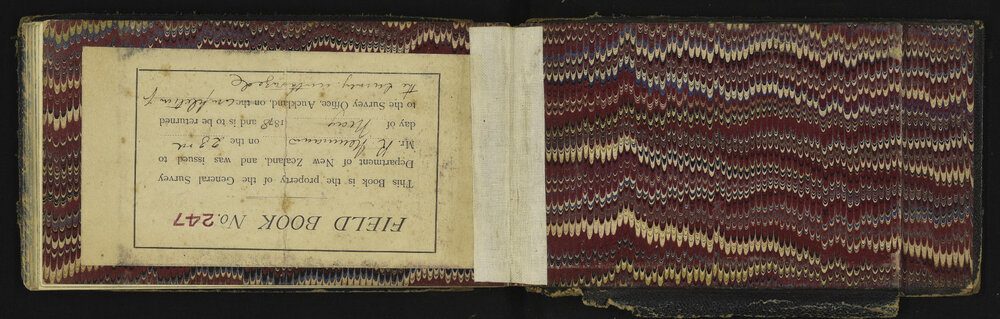 FIELD BOOK No. 247
This Book is the property of the General Survey
Department of New Zealand, and was issued to
Mr. K. Newmans on the 23rd
day of May 1878 and is to be returned
to the Survey Office, Auckland, on the completing
the survey